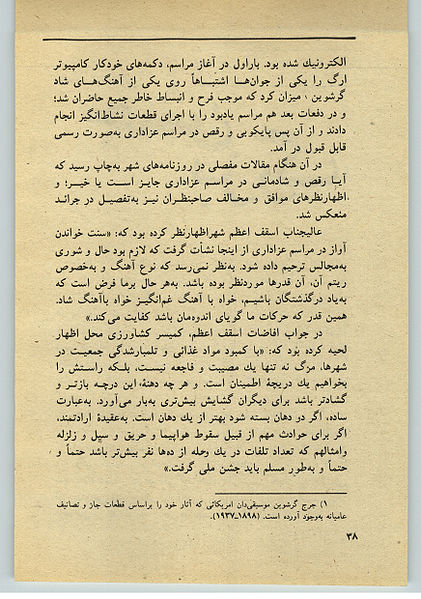 الکترونیك شده بود. باراول در آغاز مراسم، دکمه‌های خودکار کامپیوتر
ارگ را یکی از جوان‌ها اشتباهاً روی یکی از آهنگ‌های شاد
گرشوین ۱ میزان کرد که موجب فرح و انبساط خاطر جمیع حاضران شد؛
و در دفعات بعد هم مراسم یادبود را با اجرای قطعات نشاط‌انگیز انجام
دادند و از آن پس پایکوبی و رقص در مراسم عزاداری به‌صورت رسمی
قابل قبول در آمد.
در آن هنگام مقالات مفصلی در روزنامه‌های شهر به‌چاپ رسید که
آیا رقص و شادمانی در مراسم عزاداری جایز است یا خیر؛ و
اظهارنظرهای موافق و مخالف صاحبنظران نیز به‌تفصیل در جرائد
منعکس شد.
عالیجناب اسقف اعظم شهراظهارنظر کرده بود که: «سنت خواندن
آواز در مراسم عزاداری از اینجا نشأت گرفت که لازم بود حال و شوری
به‌مجالس ترحیم داده شود. به‌نظر نمی‌رسد که نوع آهنگ و به‌خصوص
ریتم آن، آن قدرها موردنظر بوده باشد. به‌هر حال برما فرض است که
به‌یاد درگذشتگان باشیم، خواه با آهنگ غم‌انگیز خواه باآهنگ شاد.
همین قدر که حرکات ما گویای اندوه‌مان باشد کفایت می‌کند.»
در جواب افاضات اسقف اعظم، کمیسر کشاورزی محل اظهار
لحیه کرده بود که: «با کمبود مواد غذائی و تلمبارشدگی جمعیت در
شهرها، مرگ نه تنها یك مصیبت و فاجعه نیست، بلکه راستش را
بخواهیم یك دریچهٔ اطمینان است. و هر چه دهنهٔ، این درچه بازتر و
گشادتر باشد برای دیگران گشایش بیش‌تری به‌بار می‌آورد. به‌عبارت
ساده، اگر دو دهان بسته شود بهتر از یك دهان است. به‌عقیدهٔ ارادتمند،
اگر برای حوادث مهم از قبیل سقوط هواپیما و حریق و سیل و زلزله
وامثالهم که تعداد تلفات در یك وهله از ده‌ها نفر بیش‌تر باشد حتماً و
حتماً و به‌طور مسلم باید جشن ملی گرفت.»
۱) جرج گرشوین موسیقی‌دان امریکائی که آثار خود را براساس قطعات جاز و تصانیف
عامیانه به‌وجود آورده است. (۱۸۹۸ـ۱۹۳۷).
۳۸